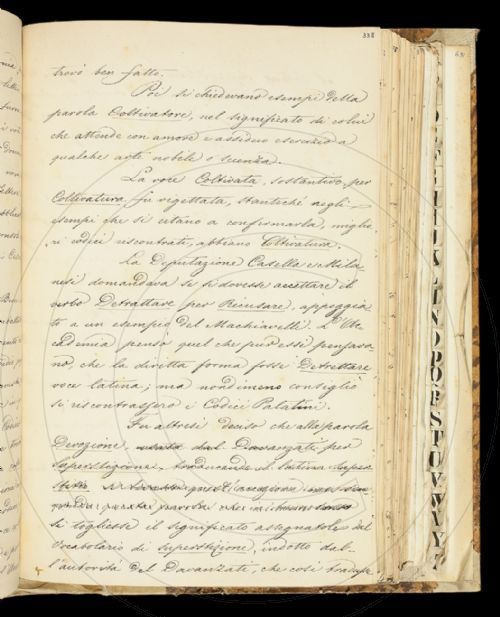 338
trovò ben fatto.
Poi si chiedevano esempi della
parola Coltivatore, nel significato di colui
che attende con amore e assiduo esercizio a
qualche arte nobile o scienza.
La voce Coltivata, sostantivo, per
Coltivatura fu rigettata, stantechè negli
esempi che si citano a confermarla, miglio-
ri codici riscontrati, abbiano Coltivatura.
La Deputazione Casella e Mila-
nesi domandava se si dovesse accettare il
verbo Detrattare per Ricusare, appoggia-
to a un esempio del Machiavelli. L'Ac-
cademia pensò quel che pur essi pensava-
no, che la diretta forma fosse Detrettare
voce latina; ma nondimeno consigliò
si riscontrassero i Codici Palatini.
Fu altresì deciso che alla parola
Devozione, usata dal Davanzati per
Superstizione, traducendo il latino Super
stitio
si togliesse il significato assegnatole dal
Vocabolario di superstizione, indotto dal-
l'autorità del Davanzati, che così traduce